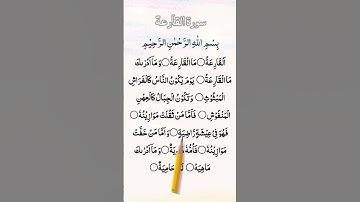 سورة القارعة
بِسْمِ اللهِ الرَّحْمٰنِ الرَّحِيْمِ
اَلْقَارِعَةُ ۝ مَا الْقَارِعَةُ ۝ وَمَا اَدْرٰىكَ
مَا الْقَارِعَةُ ۝ يَوْمَ يَكُوْنُ النَّاسُ كَالْفَرَاشِ
الْمَبْثُوْثِ ۝ وَتَكُوْنُ الْجِبَالُ كَالْعِهْنِ
الْمَنْفُوْشِ ۝ فَاَمَّا مَنْ ثَقُلَتْ مَوَازِيْنُهٗ ۝
فَهُوَ فِيْ عِيْشَةٍ رَّاضِيَةٍ ۝ وَاَمَّا مَنْ خَفَّتْ
مَوَازِيْنُهٗ ۝ فَاُمُّهٗ ۝ وَمَا اَدْرٰىكَ
مَا هِيَهْ ۝ حَامِيَةٌ ۝